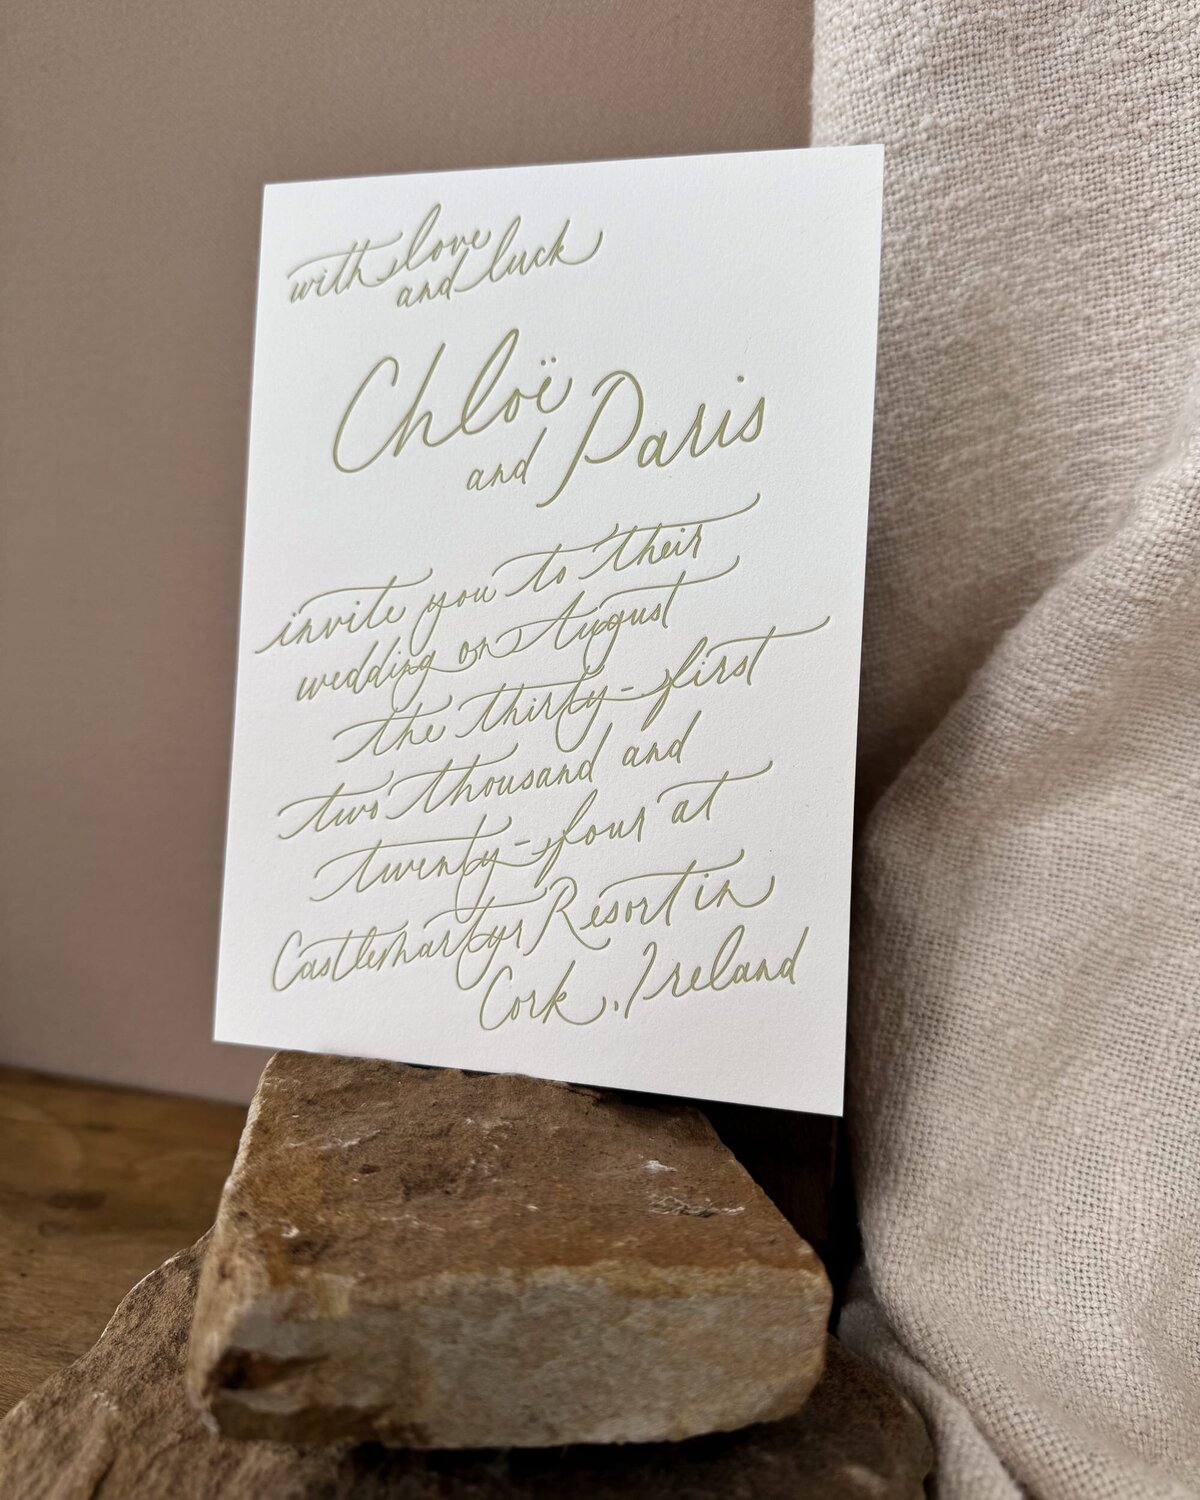 with love
and luck
Chloë
and Paris
invite you to their
wedding on August
the thirty-first
two thousand and
twenty-four at
Castlemartyr Resort in
Cork, Ireland